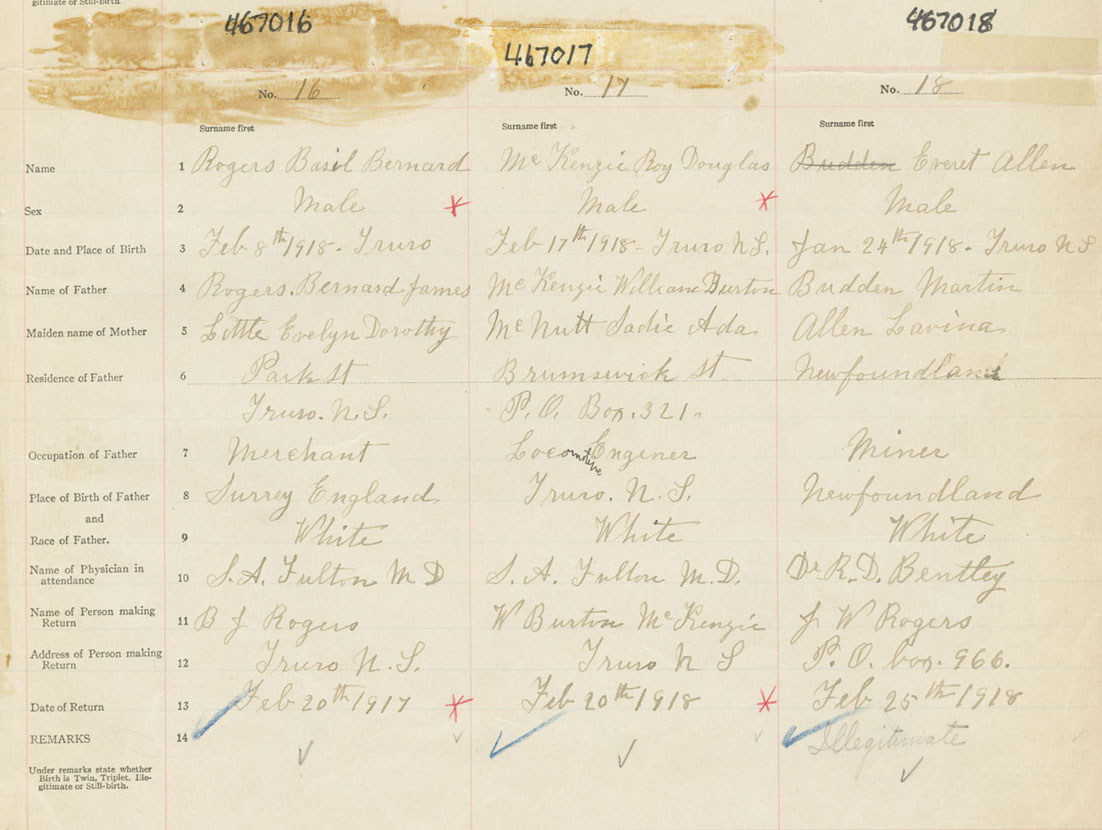 gitimate or Still-birth.
467016 467017 467018
No. 16 No. 17 No. 18
Surname first Surname first Surname first
Name 1 Rogers Basil Bernard Mc Kenzie Roy Douglas Budden Everet Allen
Sex 2 Male Male Male
Date and Place of Birth 3 Feb 8th 1918 - Truro Feb 17th 1918 - Truro N.S. Jan 24th 1918 - Truro N S
Name of Father 4 Rogers. Bernard James Mc Kenzie William Burton Budden Martin
Maiden name of Mother 5 Little Evelyn Dorothy Mc Nutt Sadie Ada Allen Lavina
Residence of Father 6 Park St Brumswick St Newfoundland
Truro. N.S. P.O. Box. 321.
Occupation of Father 7 Merchant Locomotive Enginer Miner
Place of Birth of Father 8 Surrey England Truro. N.S. Newfoundland
and
Race of Father. 9 White White White
Name of Physician in
attendance 10 S.A. Fulton M D S. A. Fulton M.D. Dr R.D. Bentley
Name of Person making
Return 11 B J Rogers W Burton McKenzie J W Rogers
Address of Person making
Return 12 Truro N.S. Truro N S P.O. box. 966.
Date of Return 13 Feb 20th 1917 Feb 20th 1918 Feb 25th 1918
REMARKS 14 Illegitimate
Under remarks state whether
Birth is Twin, Triplet, Ille-
gitimate or Still-birth.